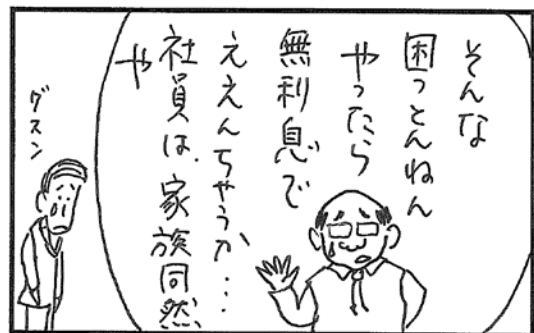 そんな
困っとんねん
やったら
無利息で
ええんちゃうか…
社員は、家族同然
や
グスン